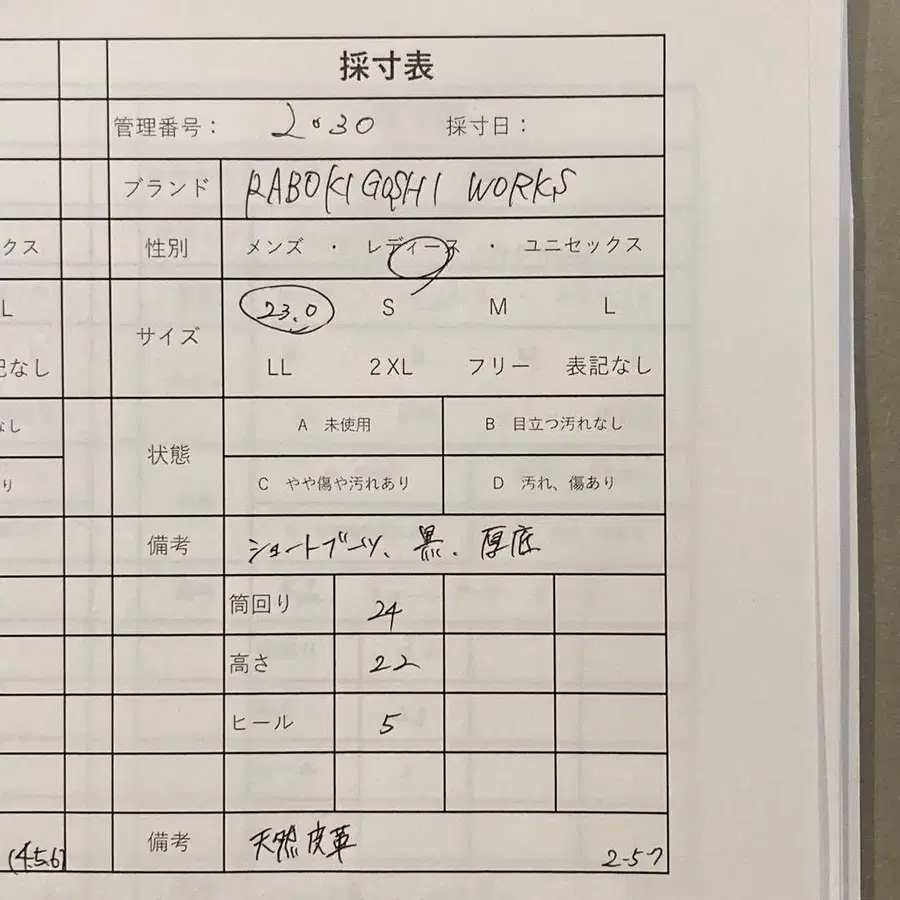 採寸表
管理番号: 2030 採寸日:
ブランド RABOKIGOSHI WORKS
クス 性別 メンズ ・ レディース ・ ユニセックス
L サイズ 23.0 S M L
記なし LL 2XL フリー 表記なし
なし 状態 A 未使用 B 目立つ汚れなし
り C やや傷や汚れあり D 汚れ、傷あり
備考 ショートブーツ、黒、厚底
筒回り 24
高さ 22
ヒール 5
備考 天然皮革
(4.5.6) 2-5-7